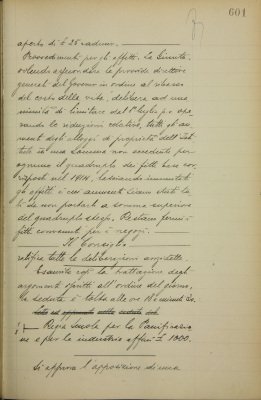 601
aperto di £ 25 caduno.
Provvedimenti per gli affitti. La Giunta,
volendo assecondare le provvide direttive
generali del Governo in ordine al ribasso
del costo della vita, delibera ad una
nimità di limitare dal 1° luglio p.v. ope
rando le riduzioni relative, tutti gli au
menti degli alloggi di proprietà dell'Isti
tuto in una somma non eccedente per
ognuno il quadruplo dei fitti base cor
risposti nel 1914, lasciando immutati
gli affitti i cui aumenti siano stati ta
li da non portarli a somma superiore
del quadruplo stesso. Restano fermi i
fitti convenuti per i negozi.
Il Consiglio
ratifica tutte le deliberazioni anzidette.
Esaurita così la trattazione degli
argomenti posti all'ordine del giorno,
la seduta è tolta alle ore
Regia Scuola per la Panificazio
ne e per le industrie affini £ 1000.
Si approva l'apposizione di una